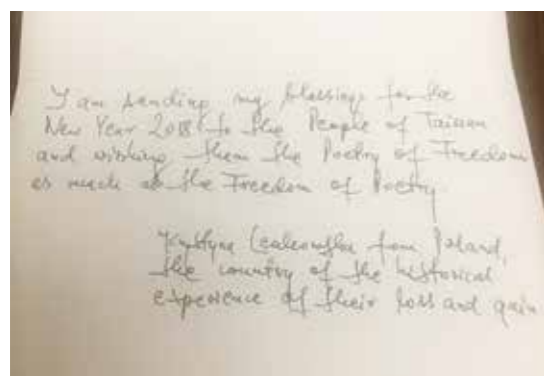 I am sending my blessings for the
New Year 2018 to the People of Taiwan
and wishing them the Poetry of Freedom
as much as the Freedom of Poetry
Krystyna from Poland,
the country of the historical
experience of their loss and gain